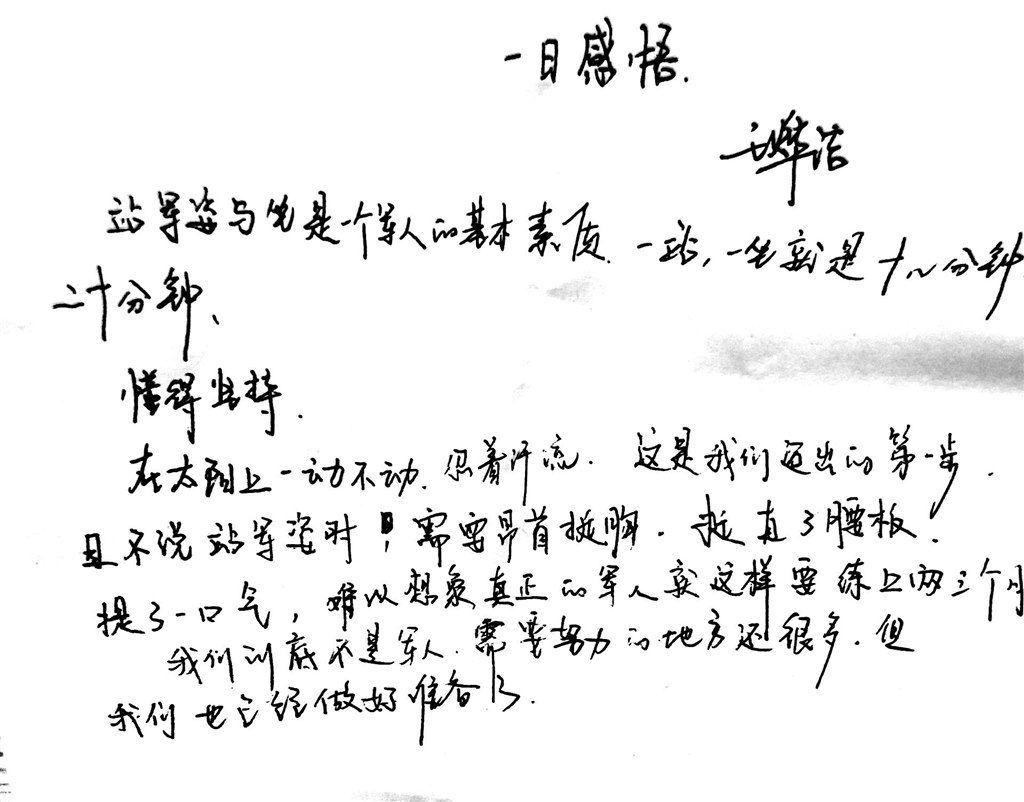 一日感悟.
站军姿与坐是一个军人的基本素质.一站,一坐就是十几分钟
二十分钟、
懂得坚持.
在太阳上一动不动.忍着汗流.这是我们迈出的第一步.
且不说站军姿时,需要昂首挺胸.挺直了腰板.
提了一口气,难以想象真正的军人竟这样要练上两三个月
我们到底不是军人.需要努力的地方还很多.但
我们也已经做好准备了.